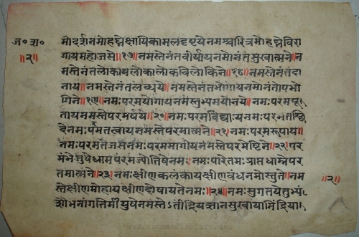 ज॰ स॰
॥२॥
मोदर्शनमोहघ्नेक्षायिकामलदृष्टयेनमश्चारित्रमोहघ्नेविरा
गायमहौजसे॥१७॥नमस्तेनंतवीर्यायनमोनंतसुखात्मनेन
मस्तेनंतलोकायलोकालोकविलोकिने॥१८॥नमस्तेनंतदा
नायनमस्तेनंतलब्धये॥नमस्तेनंतभोगायनमोनंतोपभो
गिने॥१९॥नमःपरमयोगायनमस्तुभ्यमयोनये॥नमःपरमपू
तायनमस्तेपरमर्षये॥२०॥नमःपरमविद्यायनमःपरमतछि
देनमःपरमतत्वायनमस्तेपरमात्मने॥२१॥नमःपरमरूपाय
नमःपरमतेजसेनमःपरममार्गायनमस्तेपरमेष्ठिने॥२२॥पर
मंभेजुषेधामपरमज्योतिषेनमः॥नमःपारेतमःप्राप्तधाम्नेपर
तमात्मने॥२३॥नमःक्षीणकलंकायक्षीणबंधनमोस्तुते॥नम
स्तेक्षीणमोहायक्षीणदोषायतेनमः॥२४॥नमःसुगतयेतुभ्यं
शोभनांगतिमीयुषेनमस्तेऽतींद्रियज्ञानसुखायानिंद्रिया
॥२॥